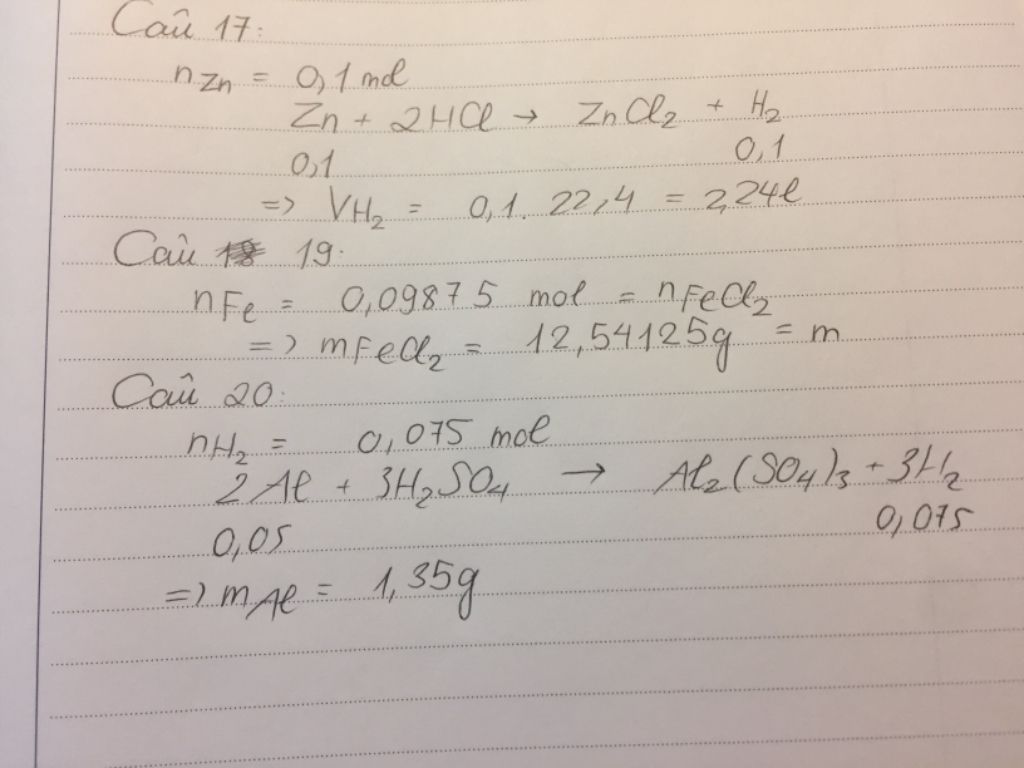 Câu 17:
nZn = 0,1 mol
Zn + 2HCl → ZnCl₂ + H₂
0,1 0,1
=> VH₂ = 0,1. 22,4 = 2,24l
Câu 19:
nFe = 0,09875 mol = nFeCl₂
=> mFeCl₂ = 12,54125g = m
Câu 20:
nH₂ = 0,075 mol
2Al + 3H₂SO₄ → Al₂(SO₄)₃ + 3H₂
0,05 0,075
=> mAl = 1,35g